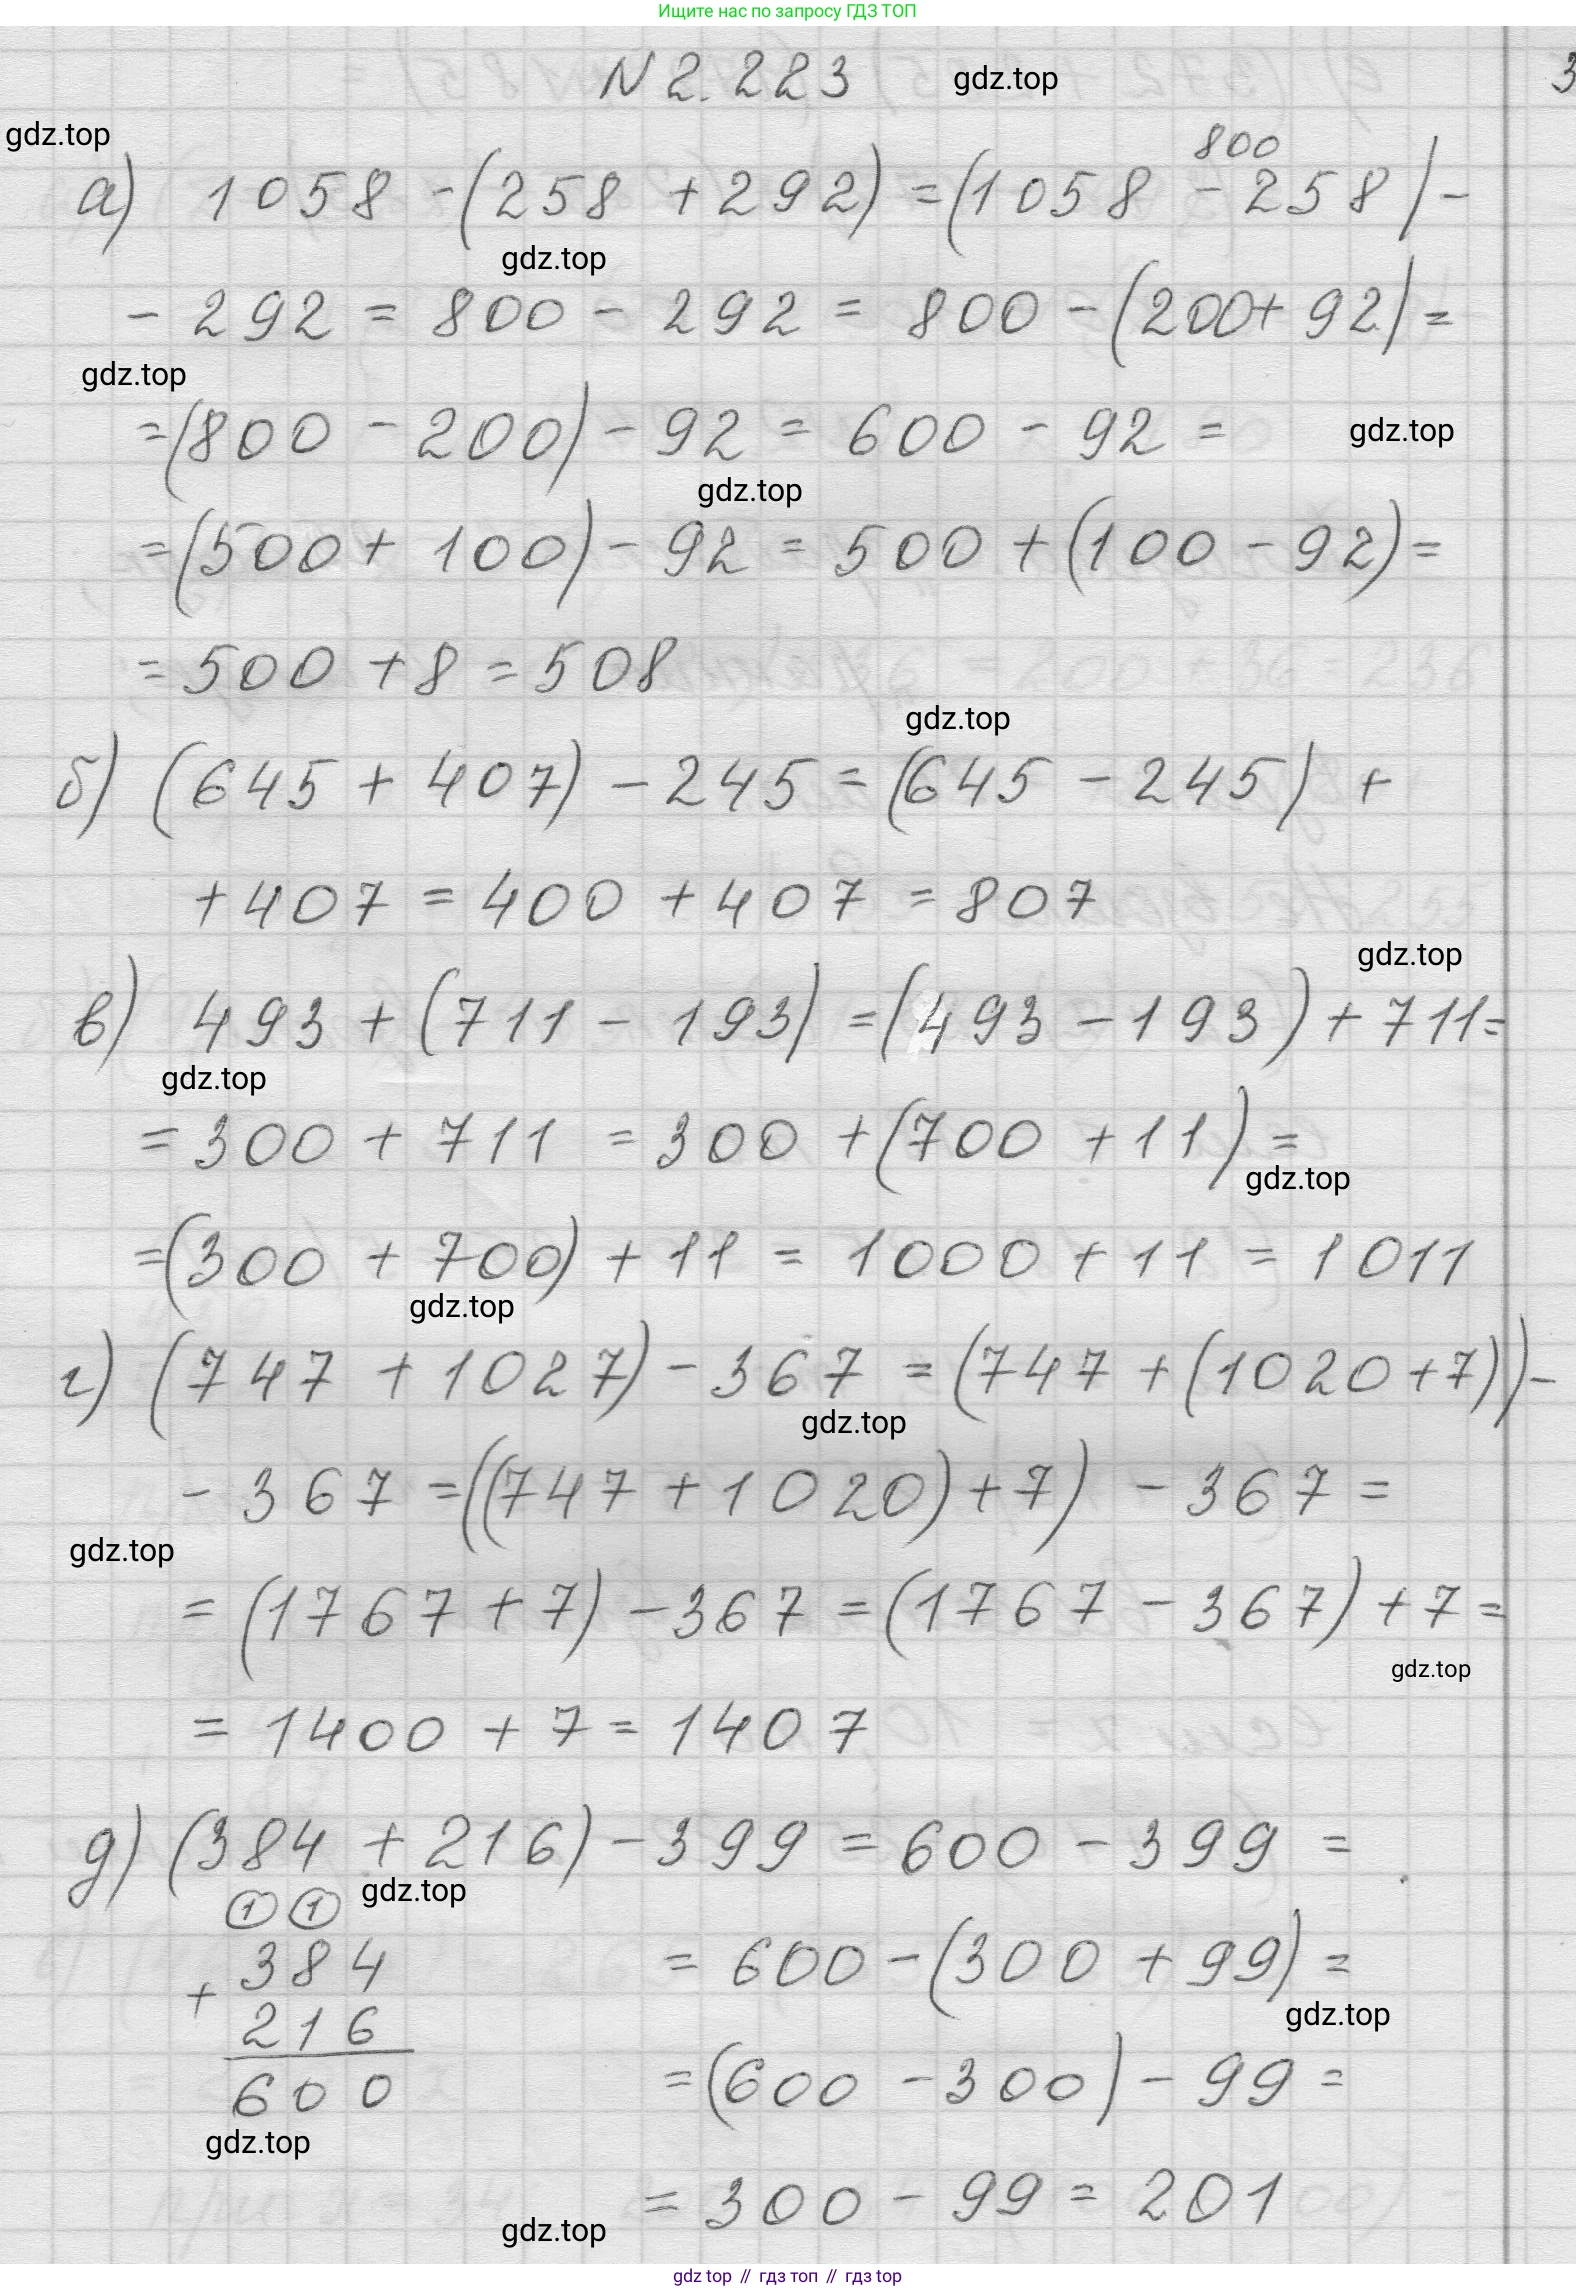 Ищите нас по запросу ГДЗ ТОП
N 2.223
gdz.top
3
gdz.top
800
а) 1058 - (258 + 292) = (1058 - 258) -
gdz.top
- 292 = 800 - 292 = 800 - (200 + 92) =
gdz.top
= (800 - 200) - 92 = 600 - 92 =
gdz.top
gdz.top
= (500 + 100) - 92 = 500 + (100 - 92) =
= 500 + 8 = 508
gdz.top
б) (645 + 407) - 245 = (645 - 245) +
+ 407 = 400 + 407 = 807
gdz.top
в) 493 + (711 - 193) = (493 - 193) + 711 =
gdz.top
= 300 + 711 = 300 + (700 + 11) =
gdz.top
= (300 + 700) + 11 = 1000 + 11 = 1011
gdz.top
г) (747 + 1027) - 367 = (747 + (1020 + 7)) -
gdz.top
- 367 = ((747 + 1020) + 7) - 367 =
gdz.top
= (1767 + 7) - 367 = (1767 - 367) + 7 =
gdz.top
= 1400 + 7 = 1407
д) (384 + 216) - 399 = 600 - 399 =
gdz.top
1 1
384
+
216
600
gdz.top
= 600 - (300 + 99) =
gdz.top
= (600 - 300) - 99 =
= 300 - 99 = 201
gdz.top
gdz top // гдз топ // гдз top